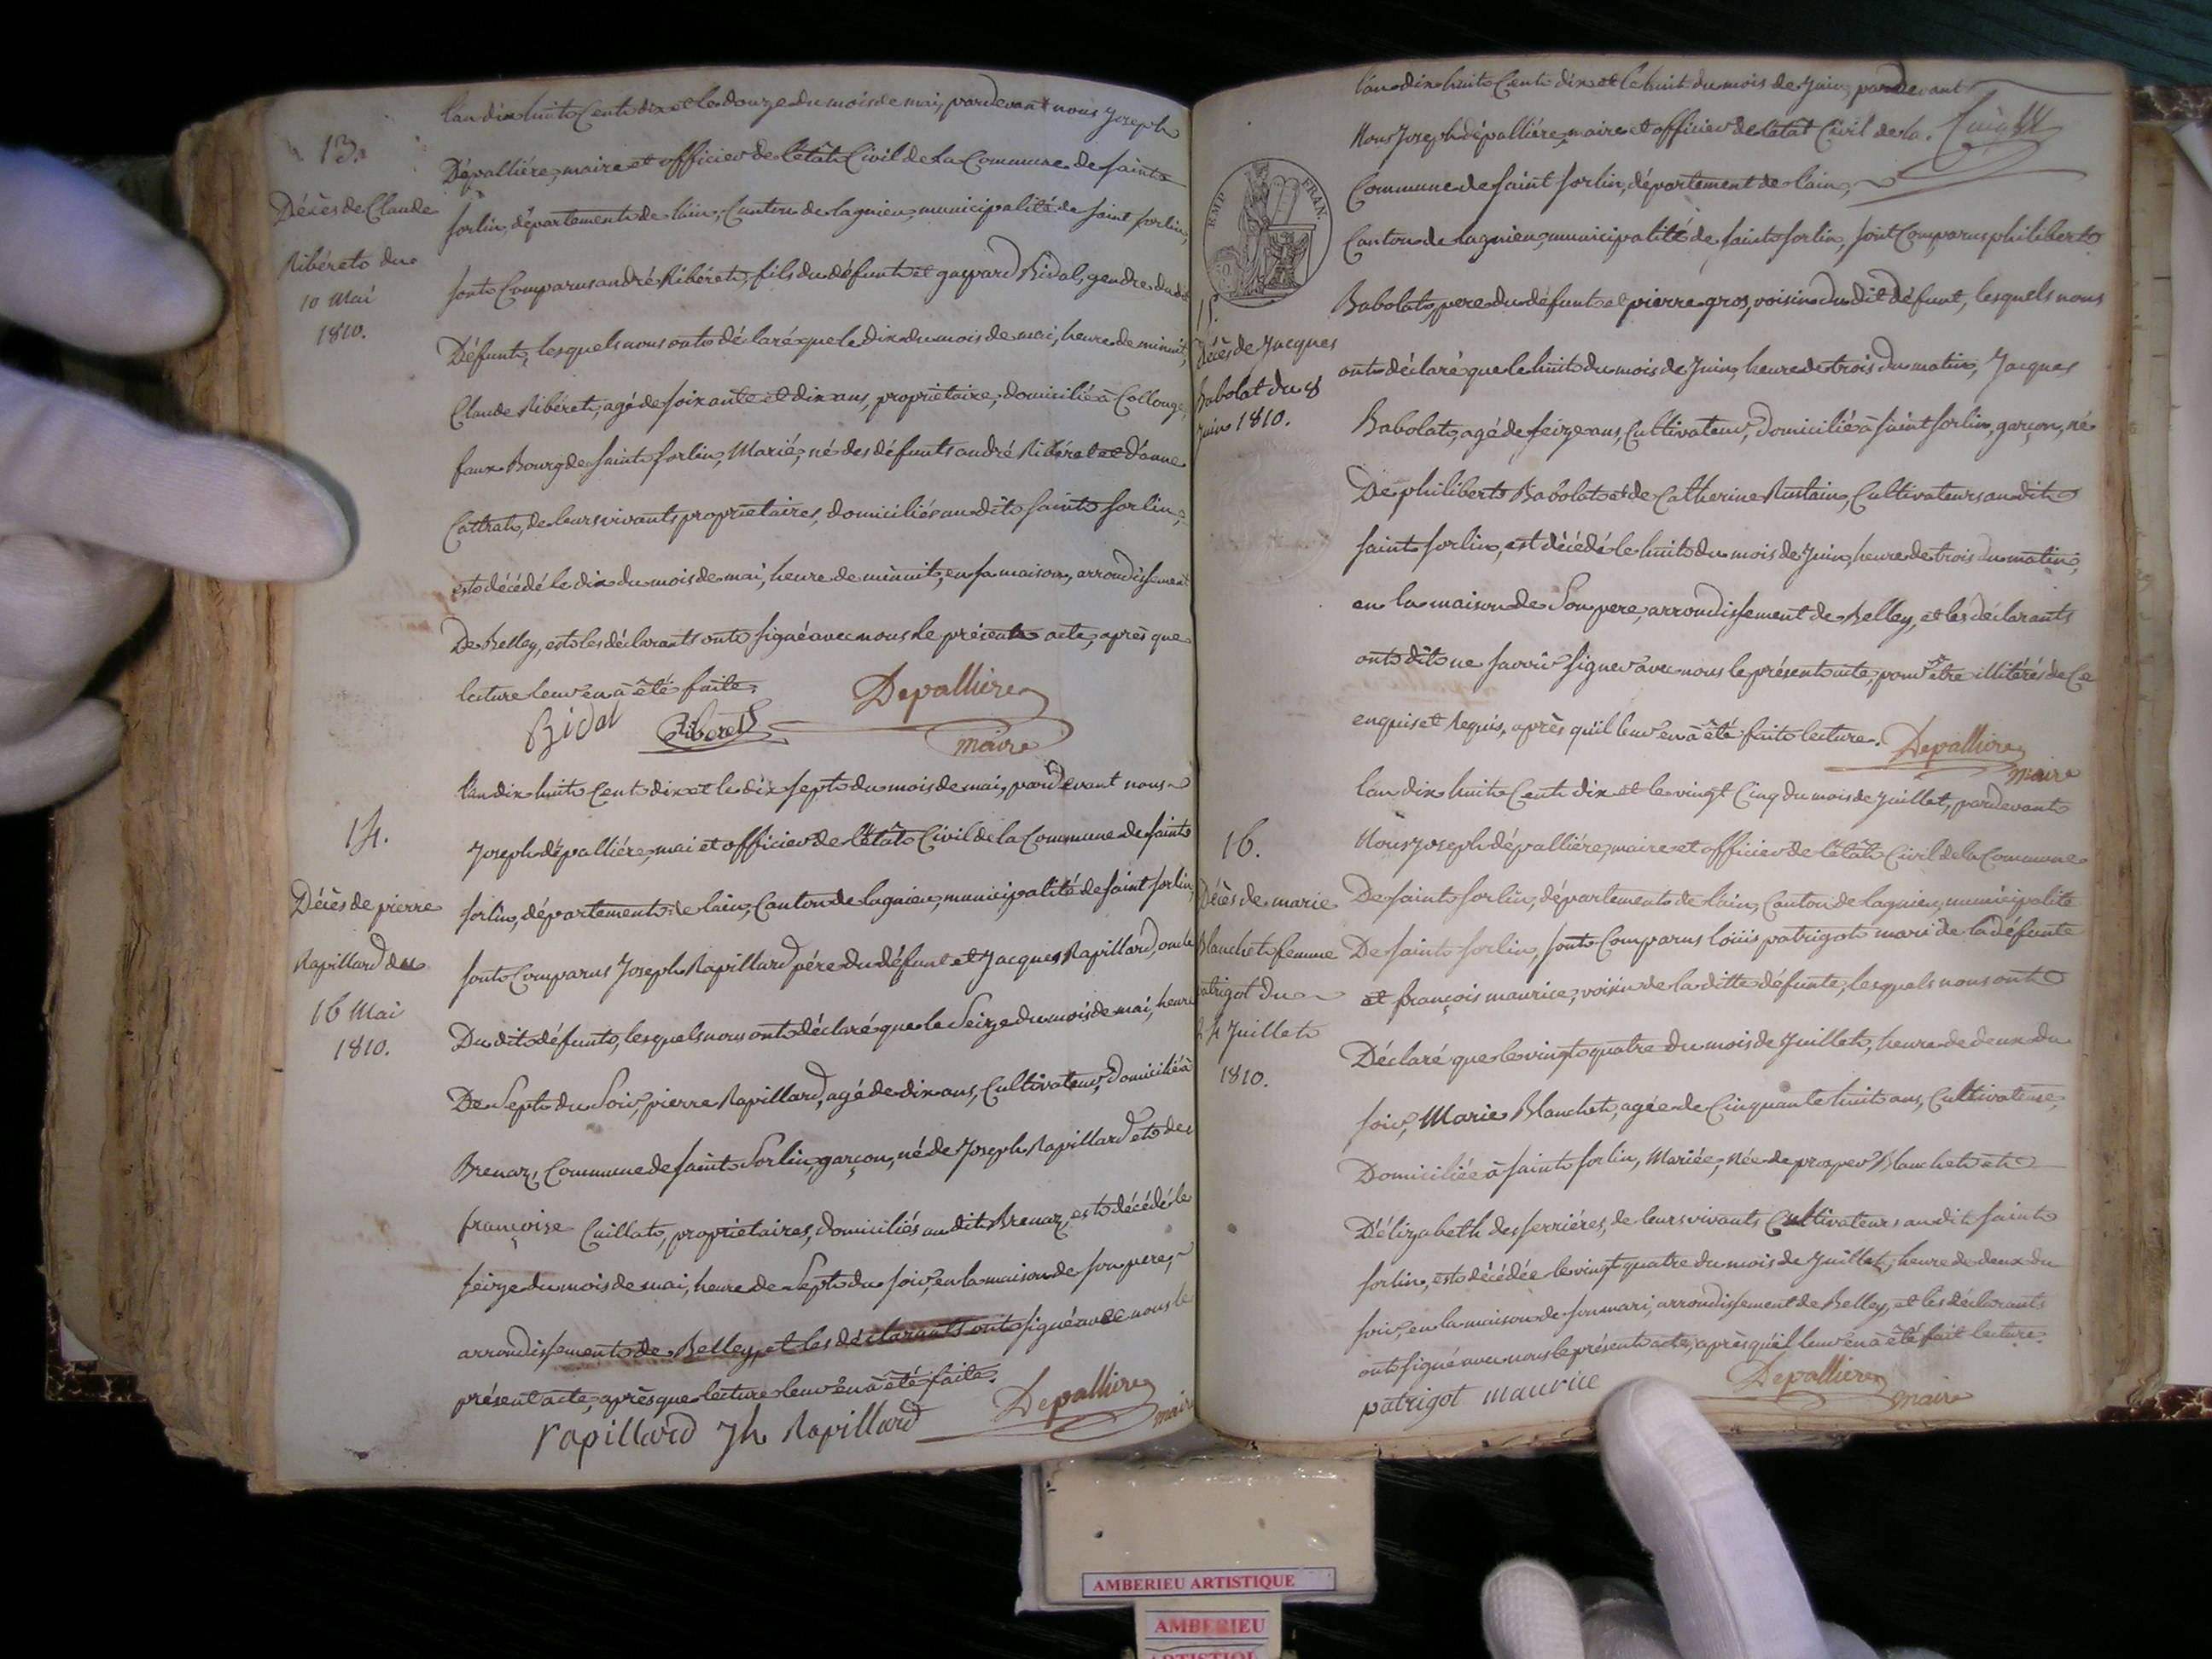 13.
Décès de Claude
Ribéret du
10 Mai
1810.
l'an dix huit Cent dix et le douze du mois de mai, pardevant nous Joseph
Dépalliére, maire et officier de l'êtât Civil de la Commune de saint
sorlin, département de l'ain, Canton de lagnieu, municipalité de saint sorlin,
sont Comparus andré Ribéret, fils du défunt et gaspard Bidal, gendre du dt
Défunt, lesquels nous ont déclaré que le dix du mois de mai, heure de minuit,
Claude Ribéret, agé de soixante et dix ans, propriètaire, domicilié à Collonge,
faux Bourg de saint sorlin, Marié, né des défunts andré Ribéret et d'anne
Cattrat, de leurs vivants propriètaires, domiciliés au dit saint sorlin,
est décédé le dix du mois de mai, heure de minuit, en sa maison, arrondissement
De Belley, et les déclarants ont signé avec nous le présent acte, après que
lecture leur en à êté faite.
Bidal Riberet Depalliere
maire
14.
Décès de pierre
Rapillard du
16 Mai
1810.
l'an dix huit Cent dix et le dix sept du mois de mai, pardevant nous
Joseph dépalliére, mai et officier de l'êtât Civil de la Commune de saint
sorlin, département de l'ain, Canton de lagnieu, municipalité de saint sorlin,
sont Comparus Joseph Rapillard pére du défunt et Jacques Rapillard, oncle
Du dit défunt, lesquels nous ont déclaré que le Seize du mois de mai, heure
De Sept du Soir, pierre Rapillard, agé de dix ans, Cultivateur, domicilié à
Brenaz, Commune de saint Sorlin, garçon, né de Joseph Rapillard et de
françoise Caillat, propriètaires, domiciliés au dit Brenaz, est décédé le
seize du mois de mai, heure de Sept du soir, en la maison de son pere,
arrondissement de Belley, et les déclarants ont signé avec nous le
présent acte, après que lecture leur en à êté faite.
rapillard Jh Rapillard Depalliere
maire
EMP FRAN.
15.
Décès de Jacques
Babolat du 8
Juin 1810.
l'an dix huit Cent dix et le huit du mois de Juin, pardevant
Nous Joseph dépalliére, maire et officier de l'êtât Civil de la
Commune de saint sorlin, département de l'ain,
Canton de lagnieu, municipalité de saint sorlin, sont Comparus philibert
Babolat, pere du défunt et pierre gros, voisin du dit défunt, lesquels nous
ont déclaré que le huit du mois de Juin, heure de trois du matin, Jacques
Babolat, agé de seize ans, Cultivateur, domicilié à saint sorlin, garçon, né
De philibert Babolat et de Catherine Rustain, Cultivateurs au dit
saint sorlin, est décédé le huit du mois de Juin, heure de trois du matin,
en la maison de Son pere, arrondissement de Belley, et les déclarants
ont dit ne savoir signer avec nous le présent acte, pour être illitérés de Ce
enquis et Requis, après qu'il leur en à êté fait lecture. Depalliere
maire
16.
Décès de marie
Blanchet femme
patrigot du
24 Juillet
1810.
l'an dix huit Cent dix et le vingt Cinq du mois de Juillet, pardevant
Nous Joseph dépalliére, maire et officier de l'êtât Civil de la Commune
De saint sorlin, département de l'ain, Canton de lagnieu, municipalité
De saint sorlin, sont Comparus loüis patrigot mari de la défunte
et françois maurice, voisin de la ditte défunte, lesquels nous ont
Déclaré que le vingt quatre du mois de Juillet, heure de deux du
soir, Marie Blanchet, agée de Cinquante huit ans, Cultivateuse,
Domiciliée à saint sorlin, Mariée, Née de prosper Blanchet et
D'élizabeth desferriéres, de leurs vivants Cultivateurs au dit saint
sorlin, est décédée le vingt quatre du mois de Juillet, heure de deux du
soir, en la maison de son mari, arrondissement de Belley, et les déclarants
ont signé avec nous le présent acte, après qu'il leur en à êté fait lecture.
patrigot maurice Depalliere
maire
AMBERIEU ARTISTIQUE
AMBERIEU
ARTISTIQUE